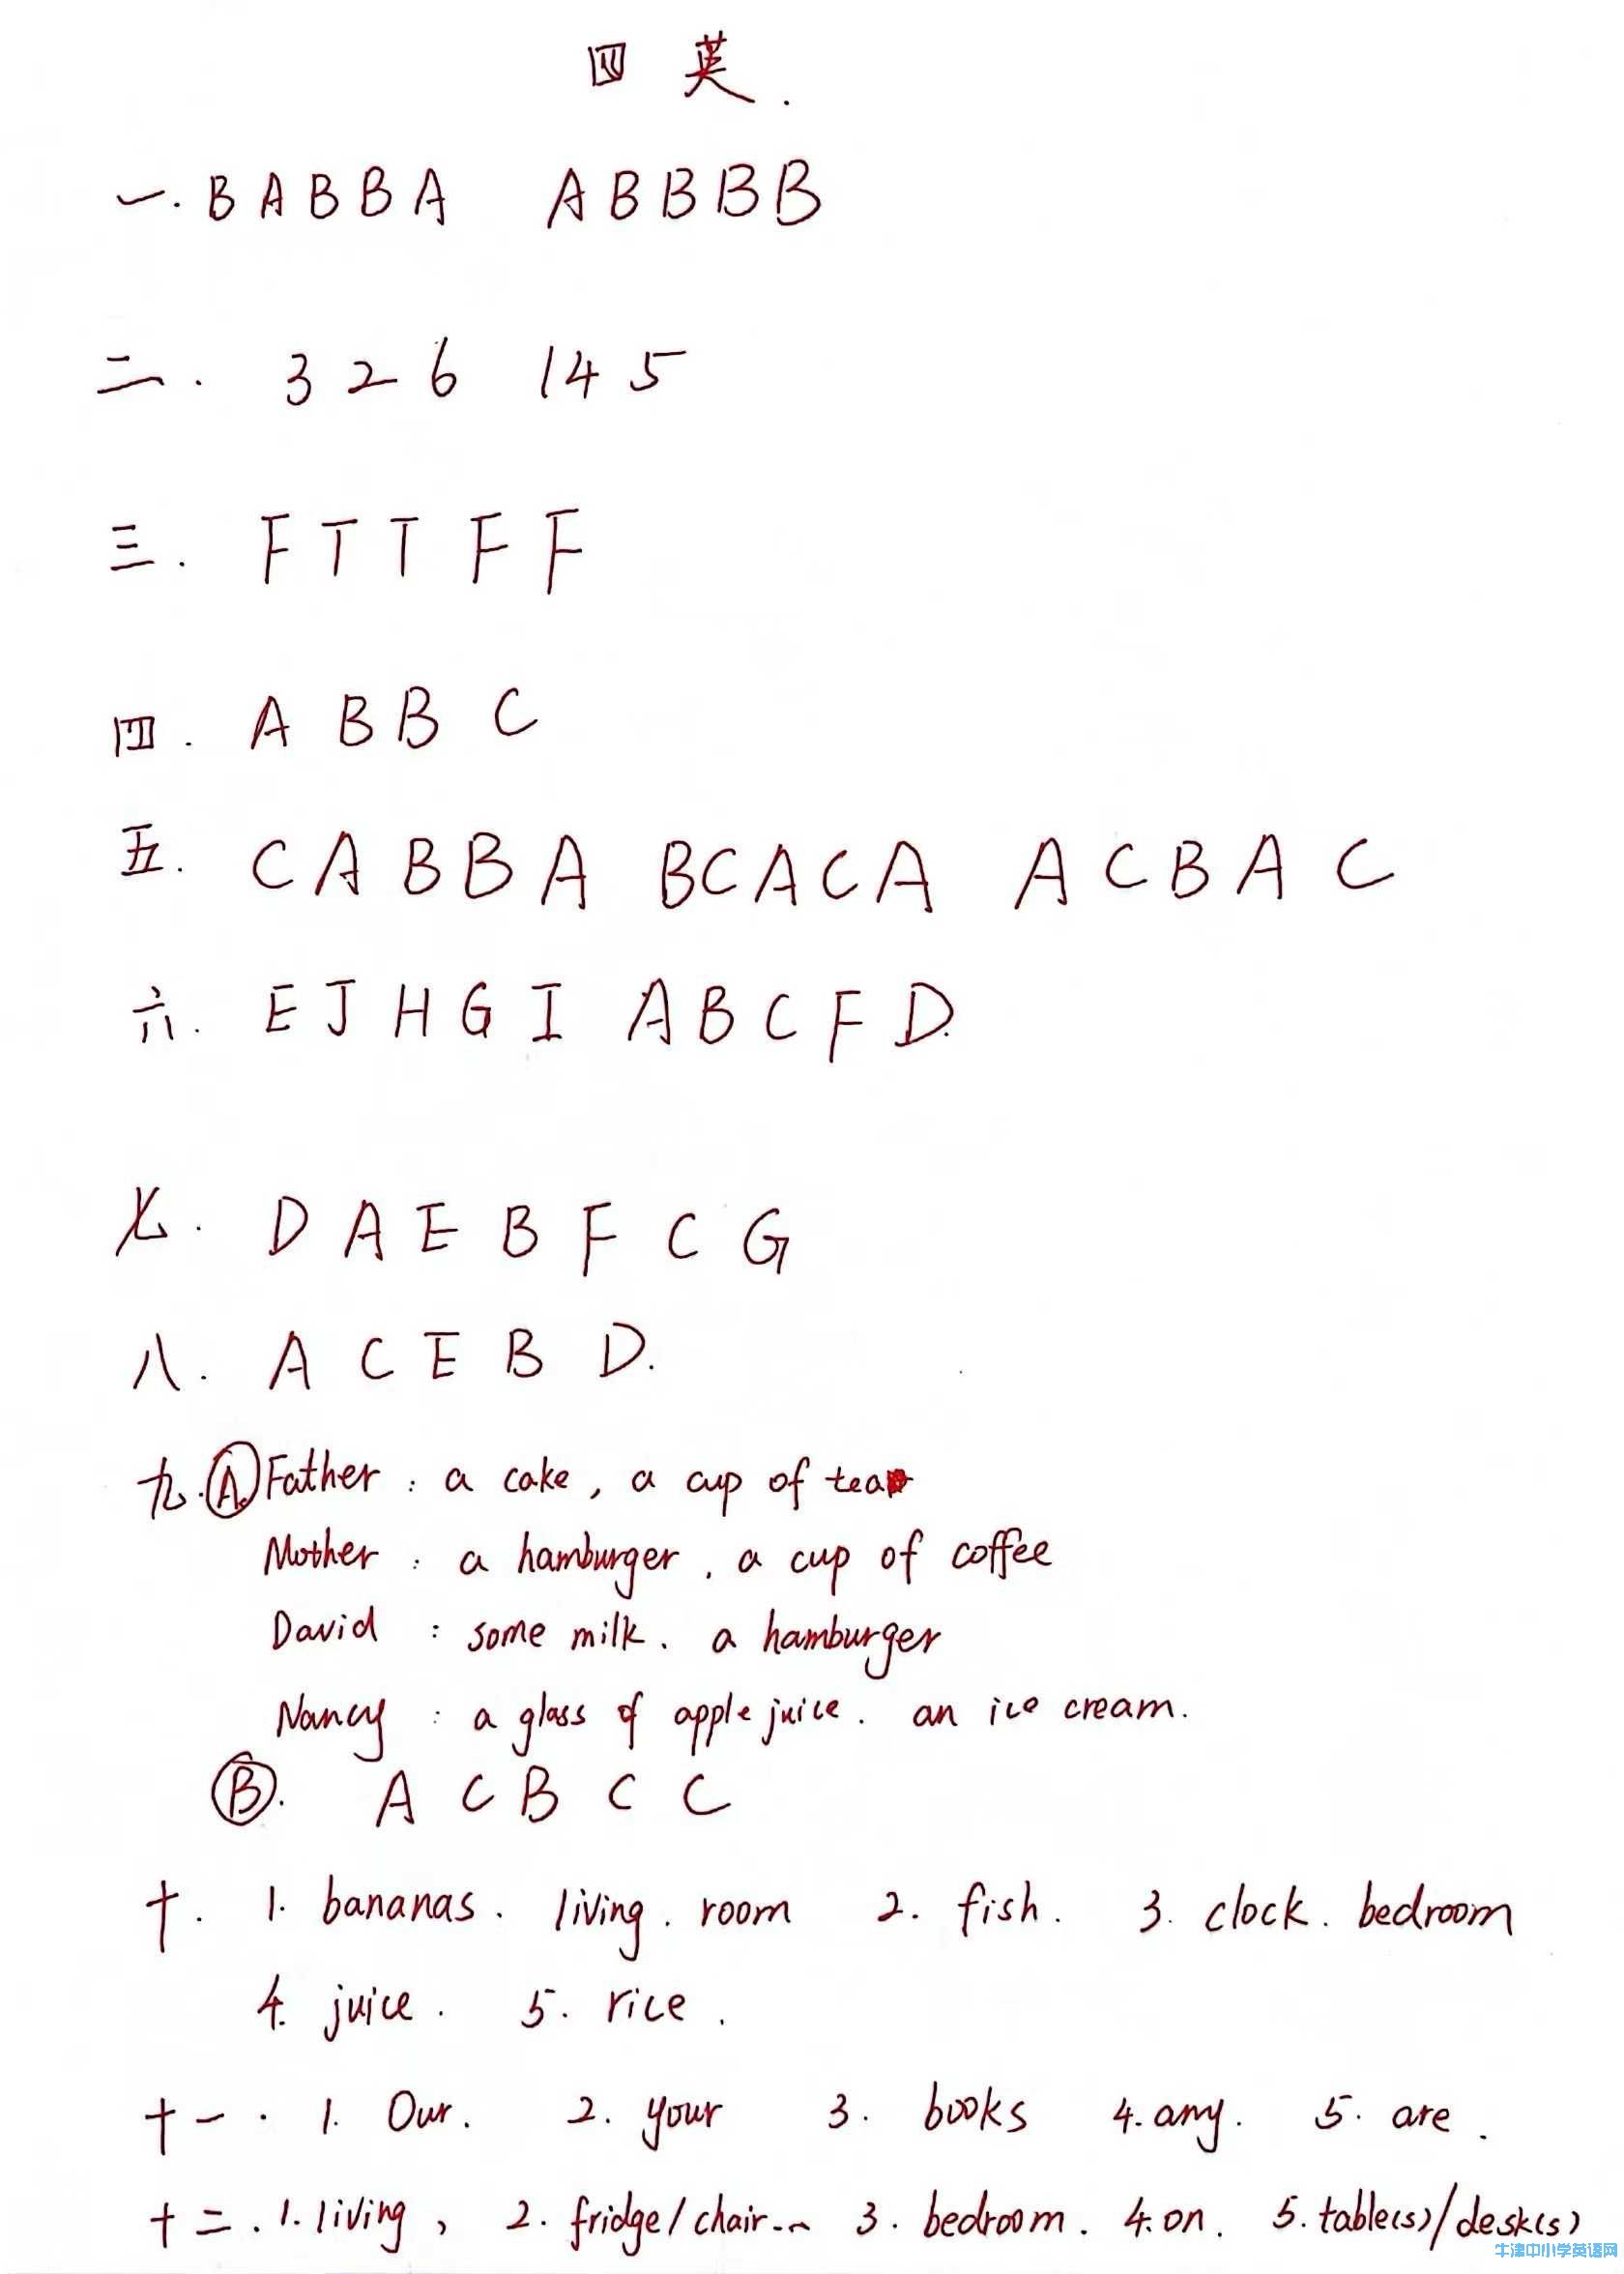 四 英.
一. B A B B A A B B B B
二. 3 2 6 1 4 5
三. F T T F F
四. A B B C
五. C A B B A B C A C A A C B A C
六. E J H G I A B C F D.
七. D A E B F C G
八. A C E B D.
九. A. Father : a cake, a cup of tea
Mother : a hamburger, a cup of coffee
David : some milk. a hamburger
Nancy : a glass of apple juice. an ice cream.
B. A C B C C
十. 1. bananas. living. room 2. fish. 3. clock. bedroom
4. juice. 5. rice.
十一. 1. Our. 2. your 3. books 4. any. 5. are.
十二. 1. living, 2. fridge/chair... 3. bedroom. 4. on. 5. table(s)/desk(s)
牛津中小学英语网